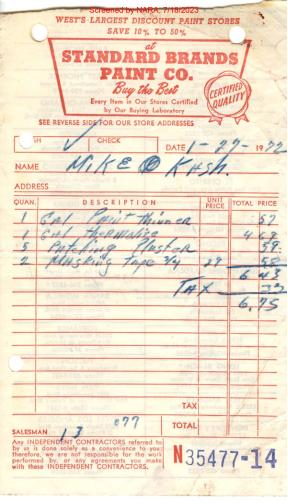 Screened by NARA, 7/18/2023
WEST'S LARGEST DISCOUNT PAINT STORES
SAVE 10% TO 50%
at
STANDARD BRANDS
PAINT CO.
Buy the Best
Every Item in Our Stores Certified
by Our Buying Laboratory
CERTIFIED QUALITY
SEE REVERSE SIDE FOR OUR STORE ADDRESSES
CASH ✓ CHECK DATE 1-27-1972
NAME MIKE Kash
ADDRESS
QUAN. DESCRIPTION UNIT PRICE TOTAL PRICE
1 Gal Paint thinner .57
1 Gal 4.69
5 Patching Plaster .59
2 Masking tape 3/4 29 .58
6.43
TAX .32
6.75
TAX
TOTAL
SALESMAN 13 077
Any INDEPENDENT CONTRACTORS referred to
by us is done solely as a convenience to you;
therefore, we are not responsible for the work
performed by, or any agreements you make
with these INDEPENDENT CONTRACTORS.
N35477-14